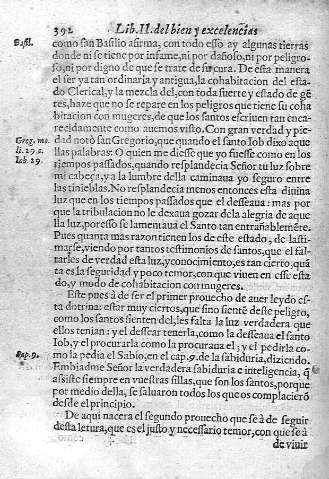 392 Lib.II. del bien y excelencias
Basil. como san Basilio afirma, con todo esso ay algunas tierras
donde ni se tiene por infame, ni por dañoso, ni por peligro-
so, ni por digno de que se trate de su cura. De esta manera
el ser ya tan ordinaria y antigua, la cohabitacion del esta-
do Clerical, y la mezcla del, con toda suerte y estado de gẽ-
tes, haze que no se repare en los peligros que tiene su coha
bitacion con mugeres, de que los santos escriuen tan enca-
recidamente como auemos visto. Con gran verdad y pie-
Greg. mo. dad notò san Gregorio, que quando el santo Iob dixo aque
li. 19. c. llas palabras: O quien me diesse que yo fuesse como en los
Iob. 29. tiempos passados, quando resplandecia Señor tu luz sobre
mi cabeça, y a la lumbre della caminaua yo seguro entre
las tinieblas. No resplandecia menos entonces esta diuina
luz que en los tiempos passados que el desseaua: mas por
que la tribulacion no le dexaua gozar dela alegria de aque
lla luz, por esso se lamentaua el Santo tan entrañablemẽre.
Pues quanta mas razon tienen los de este estado, de lasti-
marse, viendo por tantos testimonios de santos, que el fal-
tarles de verdad esta luz, y conocimiento, es tan cierto, quã
ta es la seguridad y poco temor, con que viuen en esse esta
do, y modo de cohabitacion con mugeres.
Este pues à de ser el primer prouecho de auer leydo es
ta dotrina: estar muy ciertos, que sino siente deste peligro,
como los santos sienten del, les falta la luz verdadera que
ellos tenian: y el dessear tenerla, como la desseaua el santo
Iob, y el procurarla como la procuraua el; y el pedirla co-
Sap. 9. mo la pedia el Sabio, en el cap. 9. de la sabiduria, diziendo.
Embiadme Señor la verdadera sabiduria e inteligencia, q̃
assiste siempre en vuestras sillas, que son los santos, porque
por medio della, se saluaron todos los que os complacierõ
desde el principio.
De aqui nacera el segundo prouecho que se à de seguir
desta letura, que es el justo y necessario temor, con que se à
de viuir